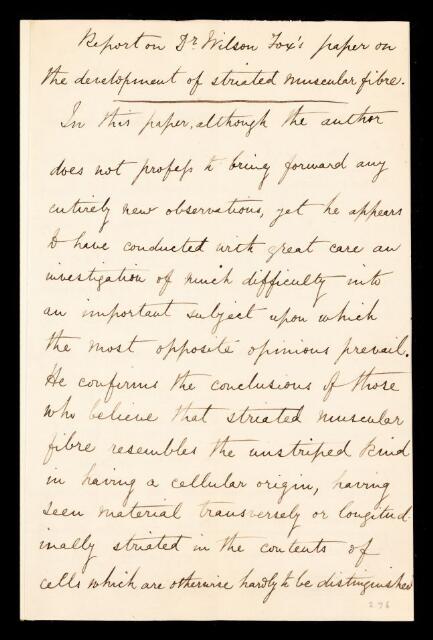 Report on Dr. Wilson Fox's paper on
the development of striated muscular fibre.
In this paper, although the author
does not profess to bring forward any
entirely new observations, yet he appears
to have conducted with great care an
investigation of much difficulty into
an important subject upon which
the most opposite opinions prevail.
He confirms the conclusions of those
who believe that striated muscular
fibre resembles the unstriped kind
in having a cellular origin, having
seen material transversely or longitud-
inally striated in the contents of
cells which are otherwise hardly to be distinguished
276